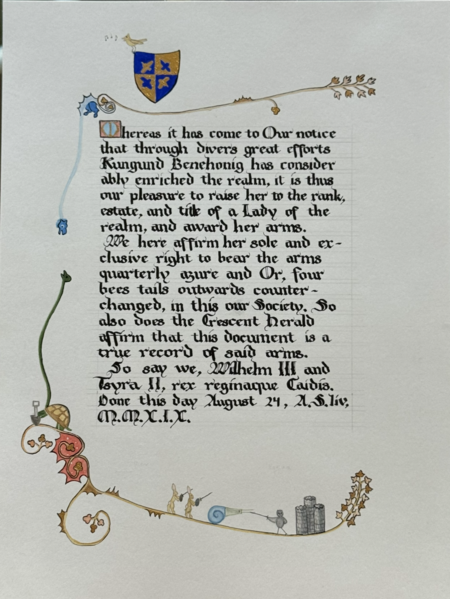 Whereas it has come to Our notice
that through divers great efforts
Kungund Benehonig has consider
ably enriched the realm, it is thus
our pleasure to raise her to the rank,
estate, and title of a Lady of the
realm, and award her arms.
We here affirm her sole and ex-
clusive right to bear the arms
quarterly azure and Or, four
bees tails outwards counter-
changed, in this our Society. So
also does the Crescent Herald
affirm that this document is a
true record of said arms.
So say we, Wilhelm III and
Tsyra II, rex reginaque Caidis.
Done this day August 24, A.S.liv,
M.M.X.I.X.